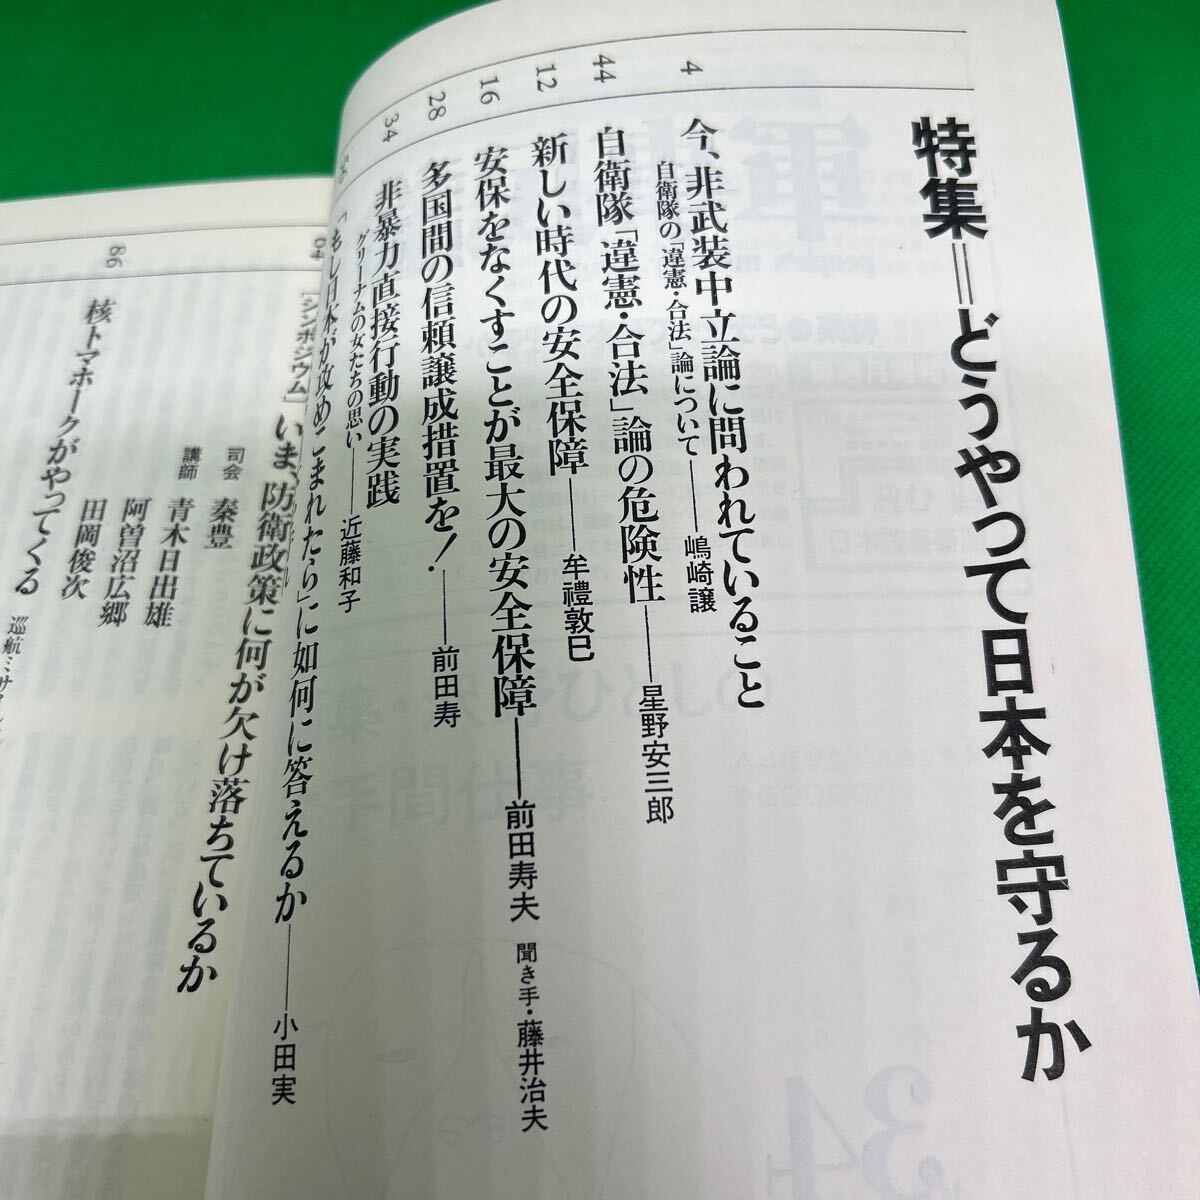 特集＝どうやって日本を守るか
4
今、非武装中立論に問われていること
自衛隊の「違憲・合法」論について――嶋崎譲
44
自衛隊「違憲・合法」論の危険性――星野安三郎
12
新しい時代の安全保障――牟禮敦巳
16
安保をなくすことが最大の安全保障――前田寿夫 聞き手・藤井治夫
28
多国間の信頼譲成措置を！――前田寿
34
非暴力直接行動の実践
グリーナムの女たちの思い――近藤和子
「もし日本が攻めこまれたら」に如何に答えるか――小田実
［シンポジウム］いま、防衛政策に何が欠け落ちているか
司会 秦豊
講師 青木日出雄
阿曽沼広郷
田岡俊次
86
核トマホークがやってくる